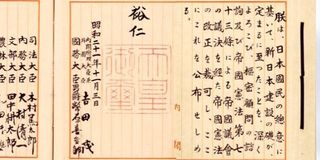 朕は、日本國民の總意に
基いて、新日本建設の礎が
定まるに至つたことを、深く
よろこび、樞密顧問の諮
詢及び帝國憲法第七
十三條による帝國議會
の議決を經た帝國憲法
の改正を裁可し、ここに
これを公布せしめる。
裕仁
昭和二十一年十一月三日
内閣總理大臣兼
外務大臣
吉田茂
國務大臣 男爵 幣原喜重郎
司法大臣 木村篤太郎
内務大臣 大村清一
文部大臣 田中耕太郎
農林大臣
内閣